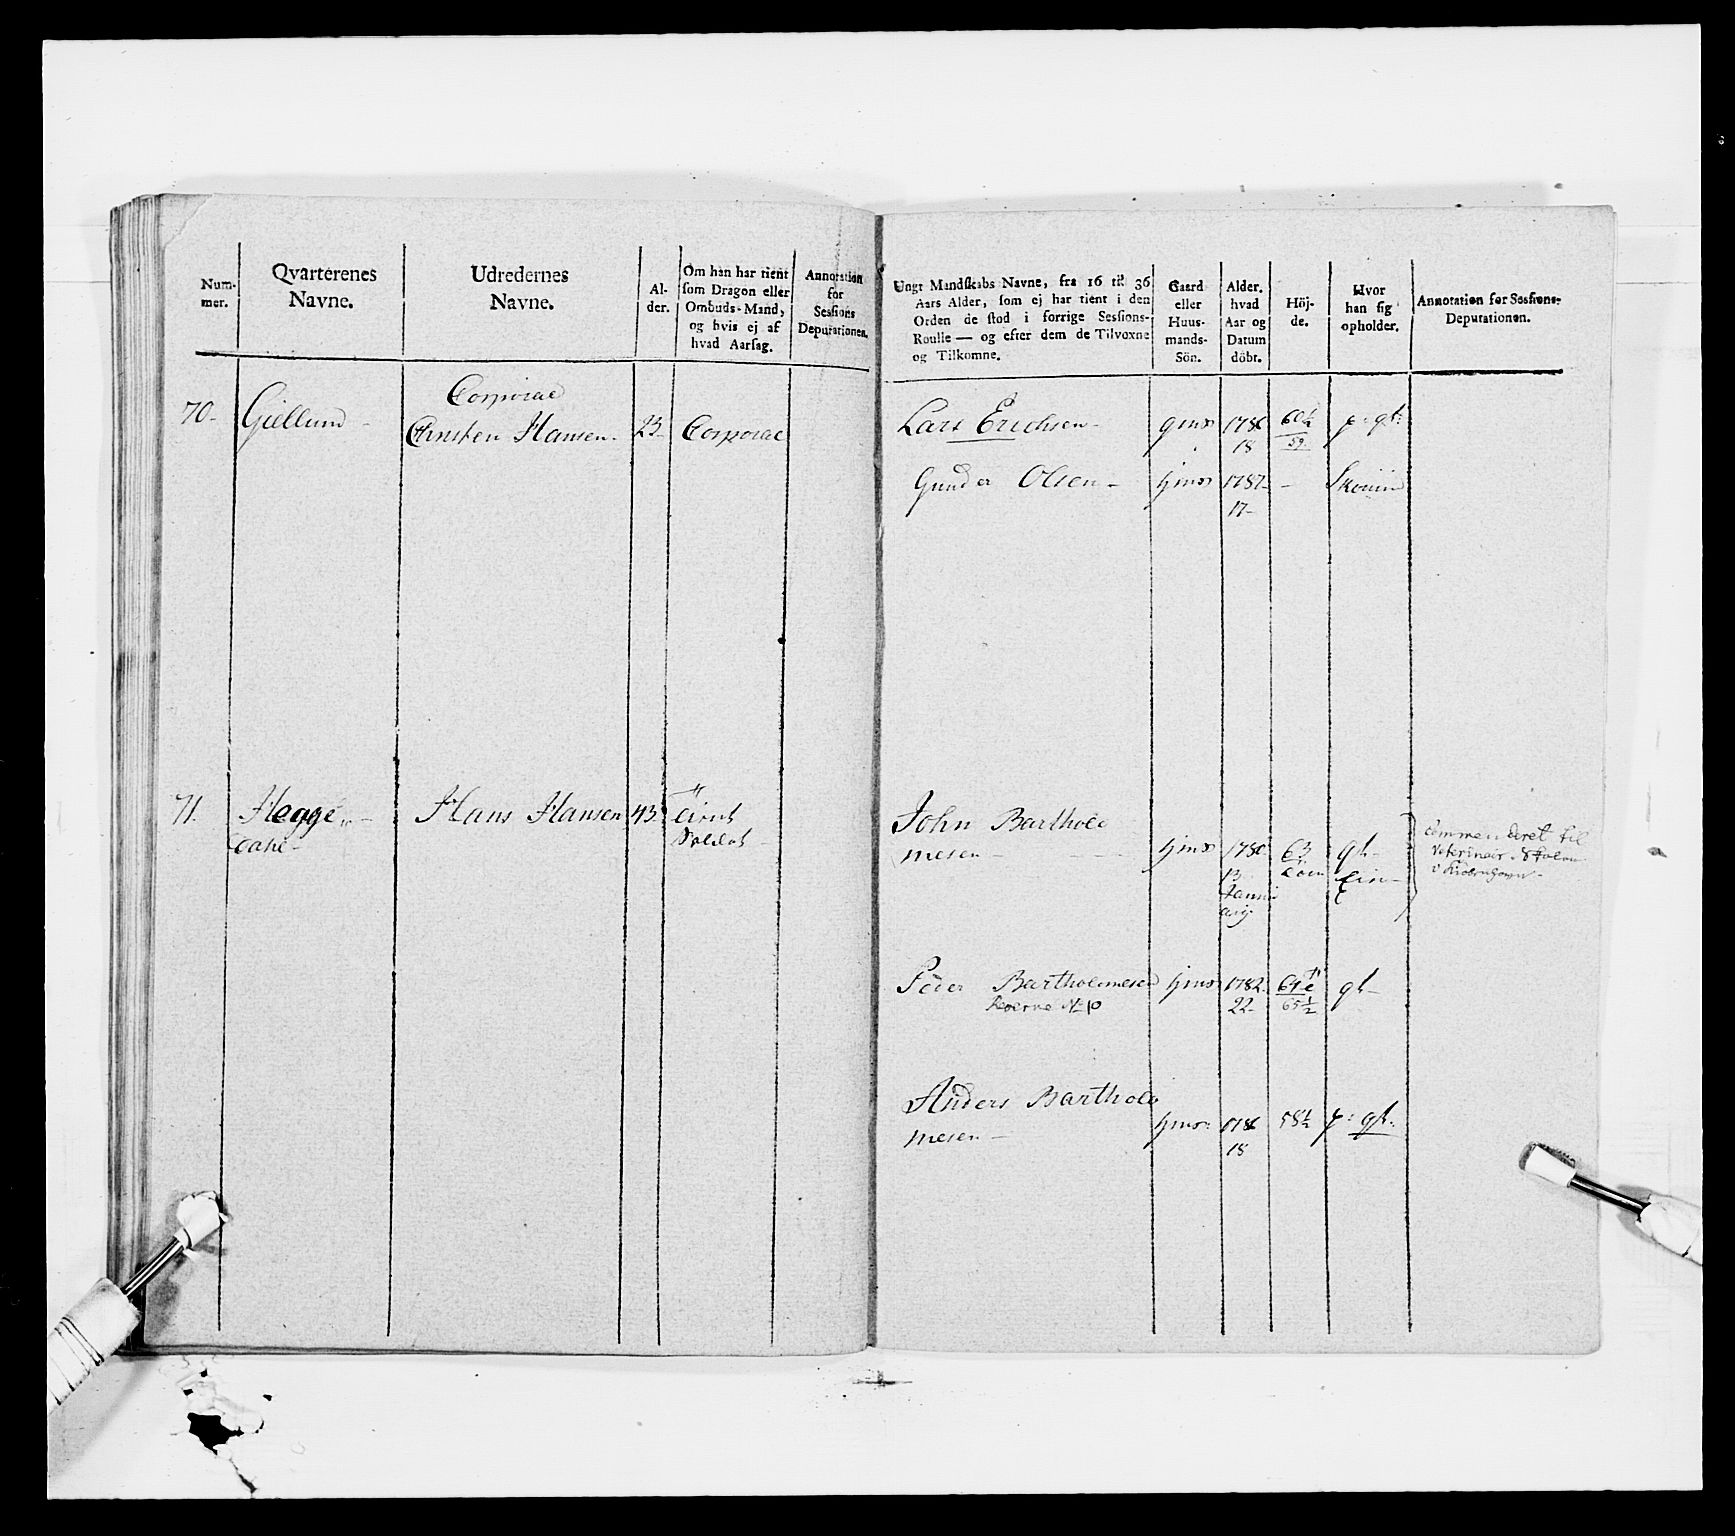 Num-
mer.
Qvarterenes
Navne.
Udredernes
Navne.
Al-
der.
Om han har tient
som Dragon eller
Ombuds-Mand,
og hvis ej af
hvad Aarsag.
Annotation
for
Sessions
Deputationen.
70. Giellund - Corporal
Christen Hansen. 23. Corporal
71. Hegge - Hans Hansen 43.
Soldat
Ungt Mandskabs Navne, fra 16 til 36
Aars Alder, som ej har tient i den
Orden de stod i forrige Sessions-
Roulle — og efter dem de Tilvoxne
og Tilkomne.
Gaard
eller
Huus-
mands-
Sön.
Alder.
hvad
Aar og
Datum
döbt.
Höj-
de.
Hvor
han sig
opholder.
Annotation for Sessions-
Deputationen.
Lars Erichsen - gms 1786 60½
18 59.
Gunder Olsen - hms 1787 -
17-
John Bartholo
mesen - hms 1780 63
13
Janu
arij
Commenderet til
Veterinair-Skolen
i Kiöbenhavn-
Peder Bartholomesen hms 1782. 64
Reserve No 10 22- 65½
Anders Bartholo
mesen - hms 1786 58½
18